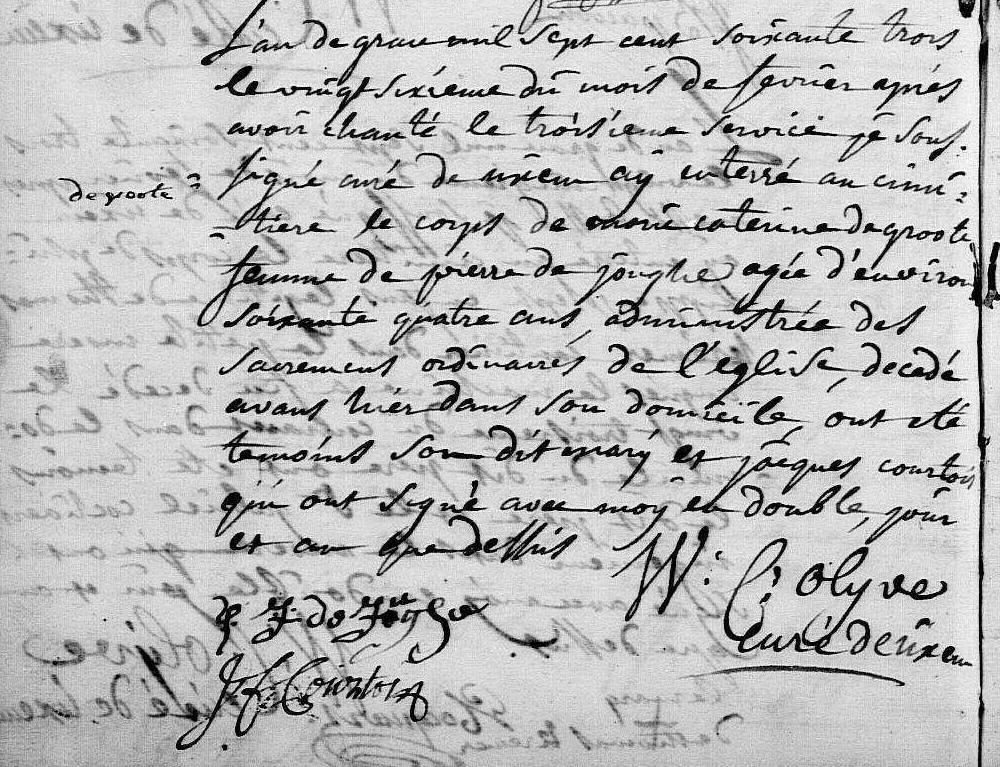 L'an de grace mil sept cent soixante trois
le vingt sixieme du mois de fevrier après
avoir chanté le troisieme service je sous-
de groote =
signé curé de uxem aÿ enterré au cimi=
=tiere le corps de marie caterine de groote
femme de pierre de jonghe agée d'environ
soixante quatre ans, administrée des
sacrement ordinaires de l'église, decedé
avans hier dans son domicile, ont eté
temoins son dit mary et jacques courtois
qui ont signé avec moÿ en double, jour
et an que dessus
W. C. olyve
curé d'uxem
p. J. de Jonghe
J. f. Courtois